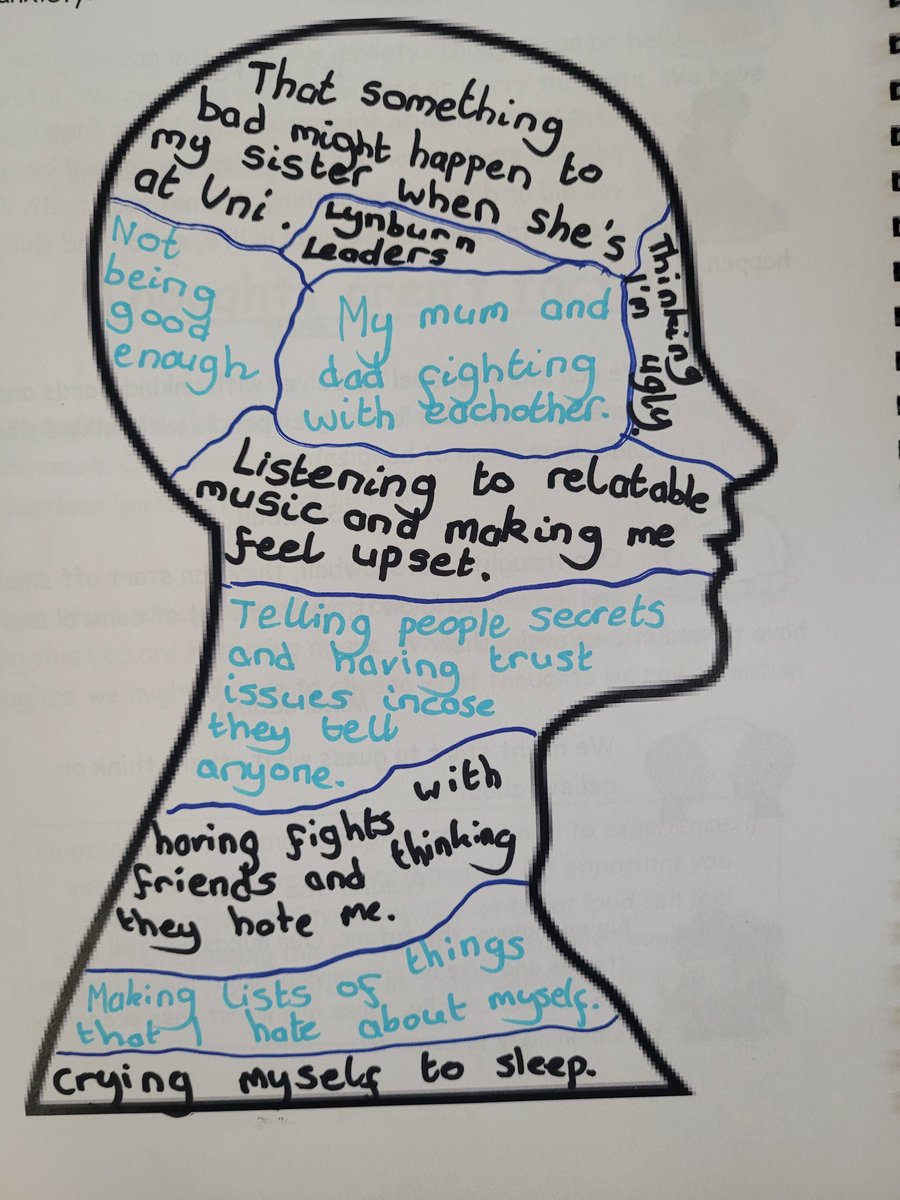 anxiety.
That something
bad might happen to
my sister when she's
at Uni.
Lynburn
Leaders
Thinking
I'm ugly.
Not
being
good
enough
My mum and
dad fighting
with eachother.
Listening to relatable
music and making me
feel upset.
Telling people secrets
and having trust
issues incase
they tell
anyone.
having fights with
friends and thinking
they hate me.
Making lists of things
that I hate about myself.
Crying myself to sleep.